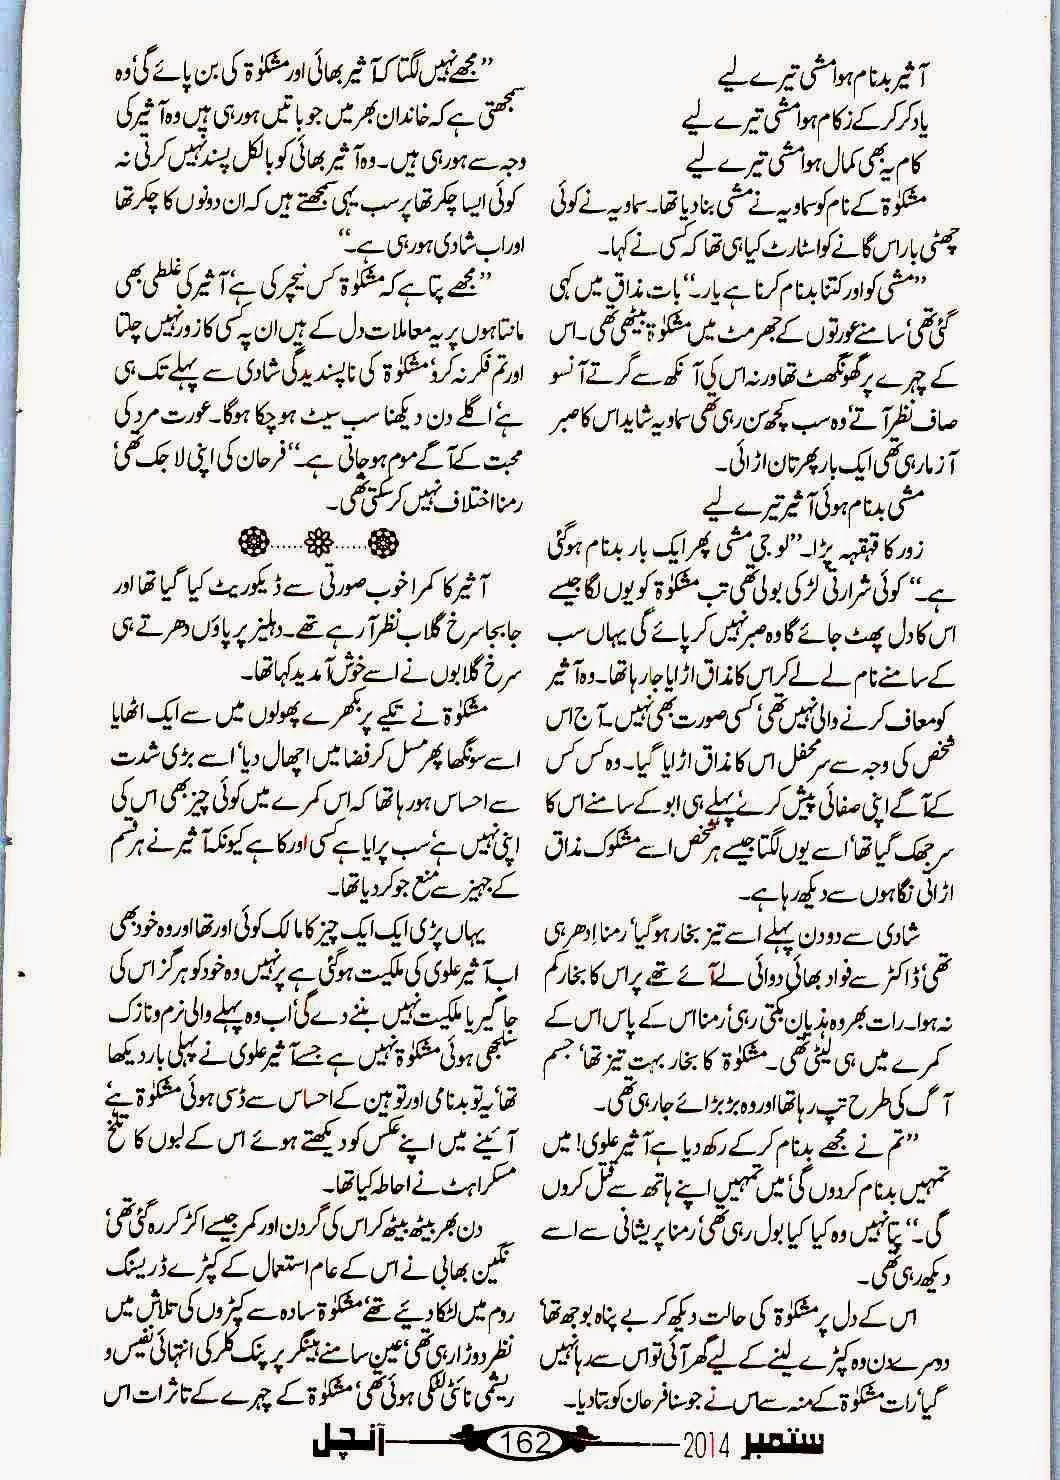 آثیر بدنام ہوا مشی تیرے لیے
یاد کر کر کے زکام ہوا مشی تیرے لیے
کام یہ بھی کمال ہوا مشی تیرے لیے
مشکوٰۃ کے نام کو سماویہ نے مشی بنا دیا تھا۔ سماویہ نے کوئی
چھٹی بار اس گانے کو اسٹارٹ کیا ہی تھا کہ کسی نے کہا۔
”مشی کو اور کتنا بدنام کرنا ہے یار۔“ بات مذاق میں کہی
گئی تھی‘ سامنے عورتوں کے جھرمٹ میں مشکوٰۃ بیٹھی تھی۔ اس
کے چہرے پر گھونگھٹ تھا ورنہ اس کی آنکھ سے گرتے آنسو
صاف نظر آتے‘ وہ سب کچھ سن رہی تھی سماویہ شاید اس کا صبر
آزما رہی تھی ایک بار پھر تان اڑائی۔
مشی بدنام ہوئی آثیر تیرے لیے
زور کا قہقہہ پڑا۔ ”لو جی مشی پھر ایک بار بدنام ہوگئی
ہے۔“ کوئی شرارتی لڑکی بولی تھی تب مشکوٰۃ کو یوں لگا جیسے
اس کا دل پھٹ جائے گا وہ صبر نہیں کر پائے گی یہاں سب
کے سامنے نام لے لے کر اس کا مذاق اڑایا جا رہا تھا۔ وہ آثیر
کو معاف کرنے والی نہیں تھی‘ کسی صورت بھی نہیں۔ آج اس
شخص کی وجہ سے سر محفل اس کا مذاق اڑایا گیا۔ وہ کس کس
کے آگے اپنی صفائی پیش کرے‘ پہلے ہی ابو کے سامنے اس کا
سر جھک گیا تھا‘ اسے یوں لگتا جیسے ہر شخص اسے مشکوک مذاق
اڑاتی نگاہوں سے دیکھ رہا ہے۔
شادی سے دو دن پہلے اسے تیز بخار ہوگیا‘ رمنا ادھر ہی
تھی‘ ڈاکٹر سے فواد بھائی دوائی لے آئے تھے پر اس کا بخار کم
نہ ہوا۔ رات بھر وہ ہذیان بکتی رہی‘ رمنا اس کے پاس اس کے
کمرے میں ہی لیٹی تھی۔ مشکوٰۃ کا بخار بہت تیز تھا‘ جسم
آگ کی طرح تپ رہا تھا اور وہ بڑبڑائے جا رہی تھی۔
”تم نے مجھے بدنام کرکے رکھ دیا ہے آثیر علوی! میں
تمہیں بدنام کردوں گی‘ میں تمہیں اپنے ہاتھ سے قتل کروں
گی۔“ پتا نہیں وہ کیا کیا بول رہی تھی‘ رمنا پریشانی سے اسے
دیکھ رہی تھی۔
اس کے دل پر مشکوٰۃ کی حالت دیکھ کر بے پناہ بوجھ تھا‘
دوسرے دن وہ کپڑے لینے کے لیے گھر آئی تو اس سے رہا نہیں
گیا‘ رات مشکوٰۃ کے منہ سے اس نے جو سنا فرحان کو بتا دیا۔
”مجھے نہیں لگتا کہ آثیر بھائی اور مشکوٰۃ کی بن پائے گی‘ وہ
سمجھتی ہے کہ خاندان بھر میں جو باتیں ہو رہی ہیں وہ آثیر کی
وجہ سے ہو رہی ہیں۔ وہ آثیر بھائی کو بالکل پسند نہیں کرتی نہ
کوئی ایسا چکر تھا پر سب یہی سمجھتے ہیں کہ ان دونوں کا چکر تھا
اور اب شادی ہو رہی ہے۔“
”مجھے پتا ہے کہ مشکوٰۃ کس نیچر کی ہے‘ آثیر کی غلطی بھی
مانتا ہوں پر یہ معاملات دل کے ہیں ان پہ کسی کا زور نہیں چلتا
اور تم فکر نہ کرو‘ مشکوٰۃ کی ناپسندیدگی شادی سے پہلے تک ہی
ہے‘ اگلے دن دیکھنا سب سیٹ ہوچکا ہوگا۔ عورت مرد کی
محبت کے آگے موم ہو جاتی ہے۔“ فرحان کی اپنی لاجک تھی‘
رمنا اختلاف نہیں کرسکتی تھی۔
آثیر کا کمرا خوب صورتی سے ڈیکوریٹ کیا گیا تھا اور
جابجا سرخ گلاب نظر آ رہے تھے۔ دہلیز پر پاؤں دھرتے ہی
سرخ گلابوں نے اسے خوش آمدید کہا تھا۔
مشکوٰۃ نے تکیے پر بکھرے پھولوں میں سے ایک اٹھایا
اسے سونگھا پھر مسل کر فضا میں اچھال دیا‘ اسے بڑی شدت
سے احساس ہو رہا تھا کہ اس کمرے میں کوئی چیز بھی اس کی
اپنی نہیں ہے‘ سب پرایا ہے کسی اور کا ہے کیونکہ آثیر نے ہر قسم
کے جہیز سے منع جو کردیا تھا۔
یہاں پڑی ایک ایک چیز کا مالک کوئی اور تھا اور وہ خود بھی
اب آثیر علوی کی ملکیت ہوگئی ہے پر نہیں وہ خود کو ہرگز اس کی
جاگیر یا ملکیت نہیں بننے دے گی‘ اب وہ پہلے والی نرم و نازک
سلجھی ہوئی مشکوٰۃ نہیں ہے جسے آثیر علوی نے پہلی بار دیکھا
تھا‘ یہ تو بدنامی اور توہین کے احساس سے ڈسی ہوئی مشکوٰۃ ہے‘
آئینے میں اپنے عکس کو دیکھتے ہوئے اس کے لبوں کا تلخ
مسکراہٹ نے احاطہ کیا تھا۔
دن بھر بیٹھ بیٹھ کر اس کی گردن اور کمر جیسے اکڑ کر رہ گئی تھی‘
نگین بھابی نے اس کے عام استعمال کے کپڑے ڈریسنگ
روم میں لٹکا دیے تھے‘ مشکوٰۃ سادہ سے کپڑوں کی تلاش میں
نظر دوڑا رہی تھی‘ عین سامنے ہینگر پر پنک کلر کی انتہائی نفیس و
ریشمی نائٹی لٹکی ہوئی تھی‘ مشکوٰۃ کے چہرے کے تاثرات اس
ستمبر 2014 162 آنچل